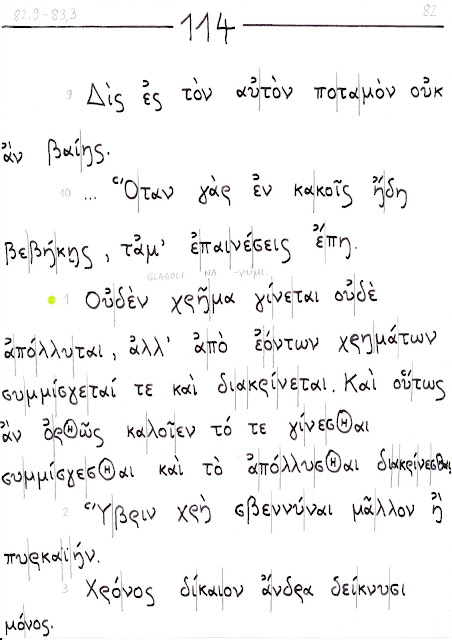 82,9-83,3 114 82
9 Δὶς ἐς τὸν αὐτὸν ποταμὸν οὐκ
ἂν βαίης.
10 ... Ὅταν γὰρ ἐν κακοῖς ἤδη
βεβήκῃς, τἄμ' ἐπαινέσεις ἔπη.
GLAGOLI NA -νυμι
1 Οὐδὲν χρῆμα γίνεται οὐδὲ
ἀπόλλυται, ἀλλ' ἀπὸ ἐόντων χρημάτων
συμμίσγεταί τε καὶ διακρίνεται. Καὶ οὕτως
ἂν ὀρθῶς καλοῖεν τό τε γίνεσθαι
συμμίσγεσθαι καὶ τὸ ἀπόλλυσθαι διακρίνεσθαι.
2 Ὕβριν χρὴ σβεννύναι μᾶλλον ἢ
πυρκαϊήν.
3 Χρόνος δίκαιον ἄνδρα δείκνυσι
μόνος.